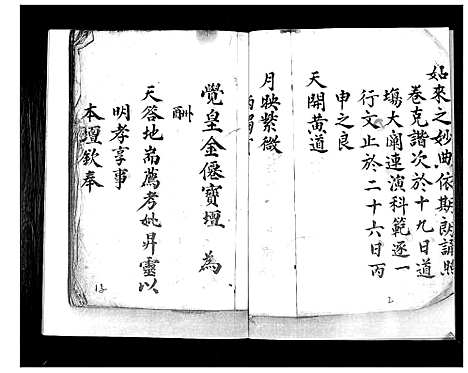 如來之妙曲依斯朗誦照
卷克諧次於十九日道
塲大闡連演科範逐一
行文止於二十六日丙
申之良
天開黄道
月映紫微
覺皇金僊寳壇　為
酬
天答地耑薦考妣昇靈以
明孝享事
本壇欽奉